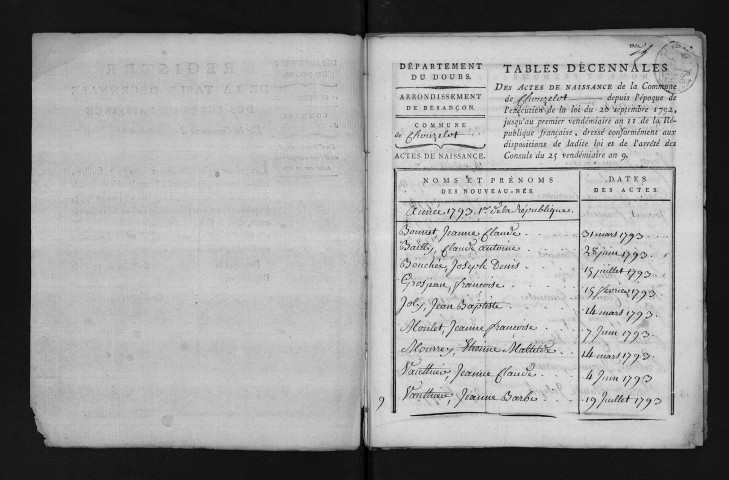 DÉPARTEMENT
DU DOUBS.
ARRONDISSEMENT
DE BESANÇON.
COMMUNE
de Chouzelot
ACTES DE NAISSANCE.
TABLES DÉCENNALES
DES ACTES DE NAISSANCE de la Commune
de Chouzelot depuis l'époque de
l'exécution de la loi du 20 septembre 1792,
jusqu'au premier vendémiaire an 11 de la Ré-
publique française, dressé conformément aux
dispositions de ladite loi et de l'arrêté des
Consuls du 25 vendémiaire an 9.
NOMS ET PRÉNOMS
DES NOUVEAU-NÉS.
DATES
DES ACTES.
Année 1793 1re de la République.
Bonnet, Jeanne Claude . . 31 mars 1793
Bailly, Claude antoine . . 28 juin 1793
Bouchée, Joseph Denis . . 15 juillet 1793
Grosjean, françoise . . 15 février 1793
Joly, Jean Baptiste . . 14 mars 1793
Moulet, Jeanne françoise . 7 juin 1793
Mourrey, Mathilde . . 14 mars 1793
Vauthier, Jeanne Claude . . 4 Juin 1793
9 Vauthier, Jeanne Barbe . . 19 Juillet 1793